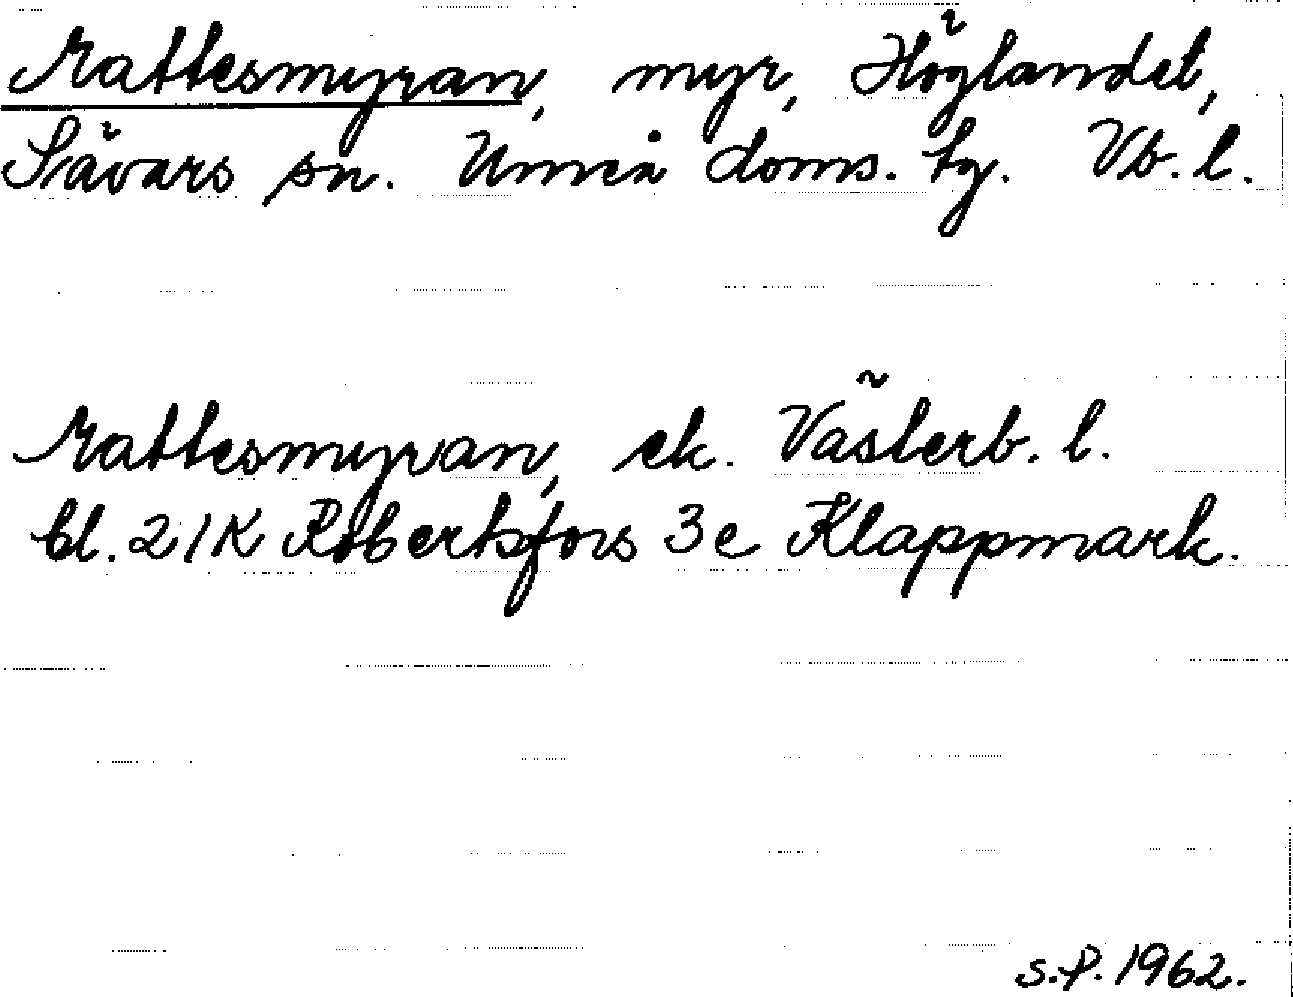 Mattesmyran, myr, Höglandet,
Sävars sn. Umeå doms. tg. Vb. l.
Mattesmyran, ek. Västerb. l.
bl. 21K Robertsfors 3e Klappmark.
S.P. 1962.